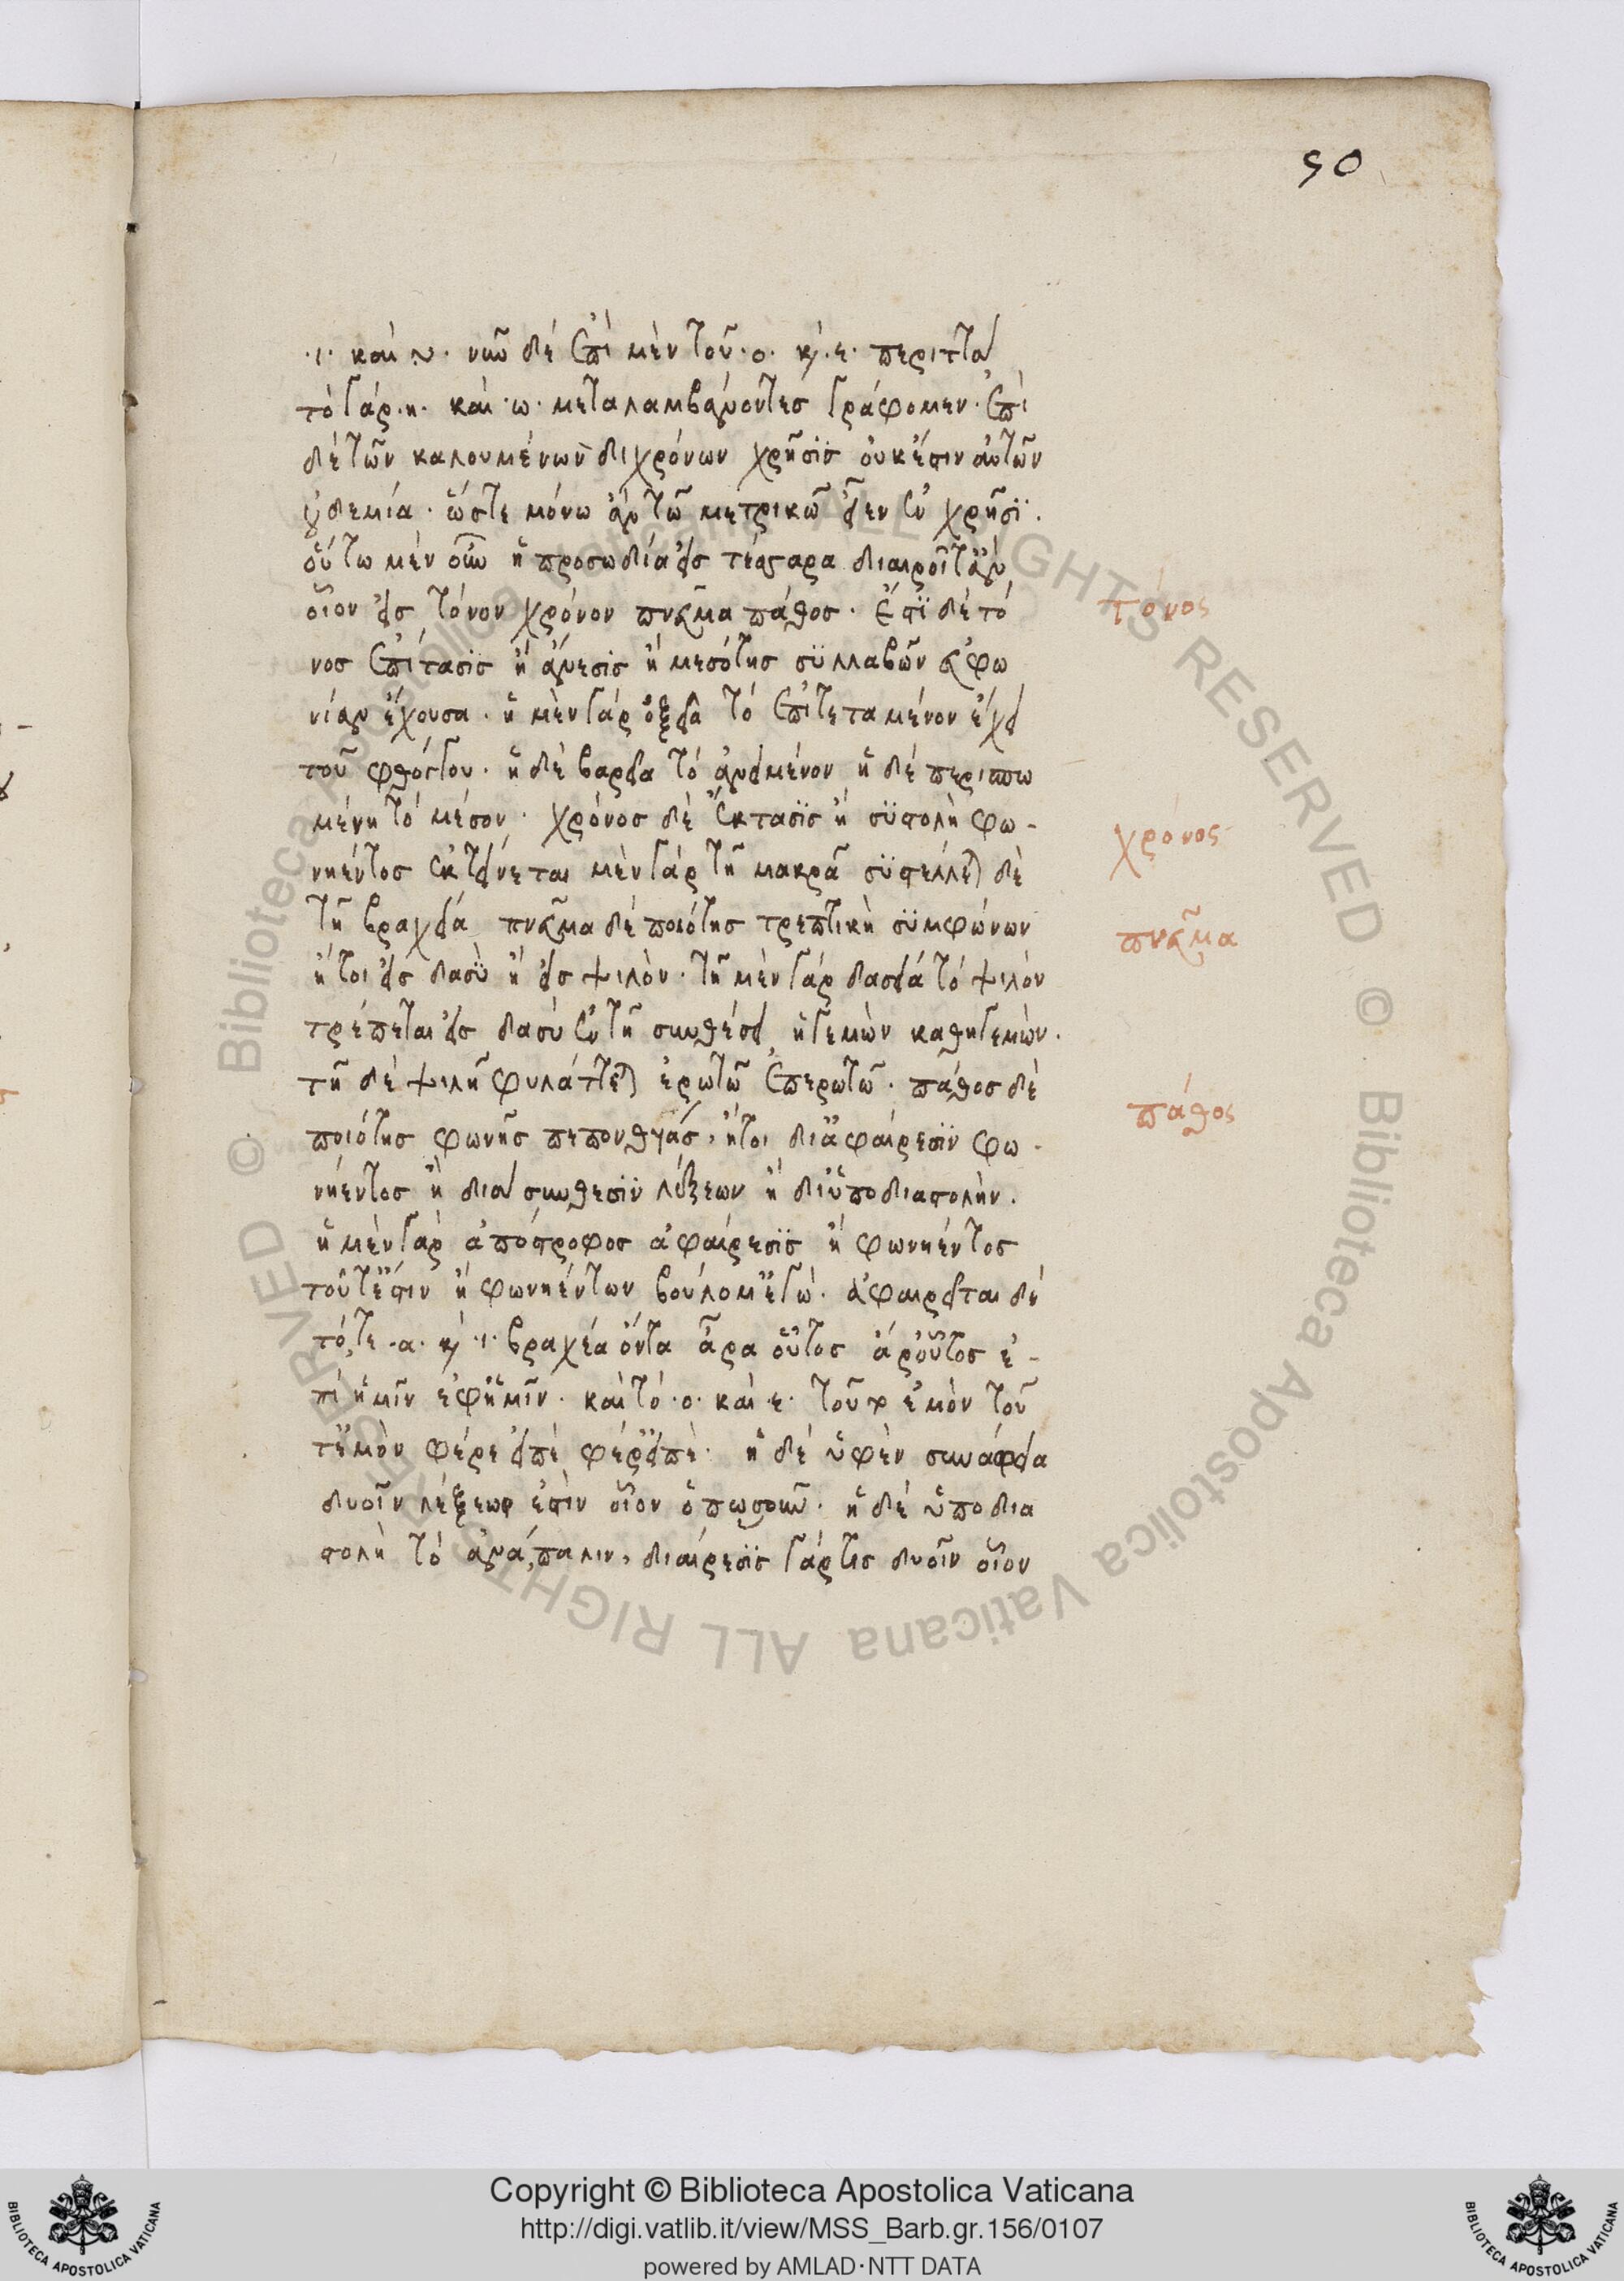 50
·ι· καὶ υ· νῦν δὲ ἐπὶ μὲν τοῦ·ο· κ̀·ε· περιττὰ
τὸ γὰρ·η· καὶ·ω· μεταλαμβάνοντες γράφομεν· ἐπὶ
δὲ τῶν καλουμένων διχρόνων χρῆσϊς οὐκέστιν αὐτῶν
οὐδεμία· ὥστε μόνω ἂν τῶ μετρικῶ εἶεν ἐν χρῆσϊ·
οὕτω μὲν οὖν ἡ προσωδία εἰς τέσσαρα διαιροῖτ ἂν
οἷον εἰς τόνον χρόνον πνεῦμα πάθος· ἔστϊ δὲ τό
νος ἐπίτασϊς ἢ ἄνεσϊς ἢ μεσότης σϋλλαβῶν εὐφω
νίαν ἔχουσα· ἡ μὲν γὰρ ὀξεῖα τὸ ἐπιτεταμένον ἔχει
τοῦ φθόγγου· ἡ δὲ βαρεῖα τὸ ἀνειμένον ἡ δὲ περισπω
μένη τὸ μέσον· χρόνος δὲ ἔκτασϊς ἢ σϋστολὴ φω-
νηέντος ἐκτείνεται μὲν γὰρ τῆ μακρᾶ σϋστέλλεται δὲ
τῆ βραχεία πνεῦμα δὲ ποιότης τρεπτικὴ σϋμφώνων
ἤτοι εἰς δασὺ ἢ εἰς ψιλὸν· τῆ μὲν γὰρ δασεία τὸ ψιλὸν
τρέπεται εἰς δασὺ ἐν τῆ συνθέσει ἡγεμὼν καθηγεμὼν·
τῆ δὲ ψιλῆ φυλάττεται ἐρωτῶ ἐπερωτῶ· πάθος δὲ
ποιότης φωνῆς πεπονθυίας, ἤτοι δι ἀφαίρεσϊν φω-
νήεντος ἢ διὰ συνθεσϊν λέξεων ἢ δι ὑποδιαστολὴν·
ἡ μὲν γὰρ ἀπόστροφος ἀφαίρεσϊς ἢ φωνηέντος
τουτέστιν ἢ φωνηέντων βούλομ ἐγὼ· ἀφαιρεῖται δὲ
τό,τε·α· κ̀·ι· βραχέα ὄντα ἆρα οὗτος ἆρ οὗτος ἐ-
πὶ ἡμῖν ἐφ ἡμῖν· καὶ τὸ·ο· καὶ·ε· τοῦτο ἐμὸν τοῦ
τ ἐμὸν φέρε εἰπὲ φέρ εἰπὲ· ἡ δὲ ὑφὲν συνάφεια
δυοῖν λέξεων ἐστὶν οἷον ὁπωσοῦν· ἡ δὲ ὑποδια
στολὴ τὸ ἀνά,παλιν, διαίρεσϊς γάρ τις δυοῖν οἷον
τόνος
χρόνος
πνεῦμα
πάθος
Copyright © Biblioteca Apostolica Vaticana
http://digi.vatlib.it/view/MSS_Barb.gr.156/0107
powered by AMLAD·NTT DATA
BIBLIOTECA APOSTOLICA VATICANA
BIBLIOTECA APOSTOLICA VATICANA
© Biblioteca Apostolica Vaticana ALL RIGHTS RESERVED © Biblioteca Apostolica Vaticana ALL RIGHTS RESERVED